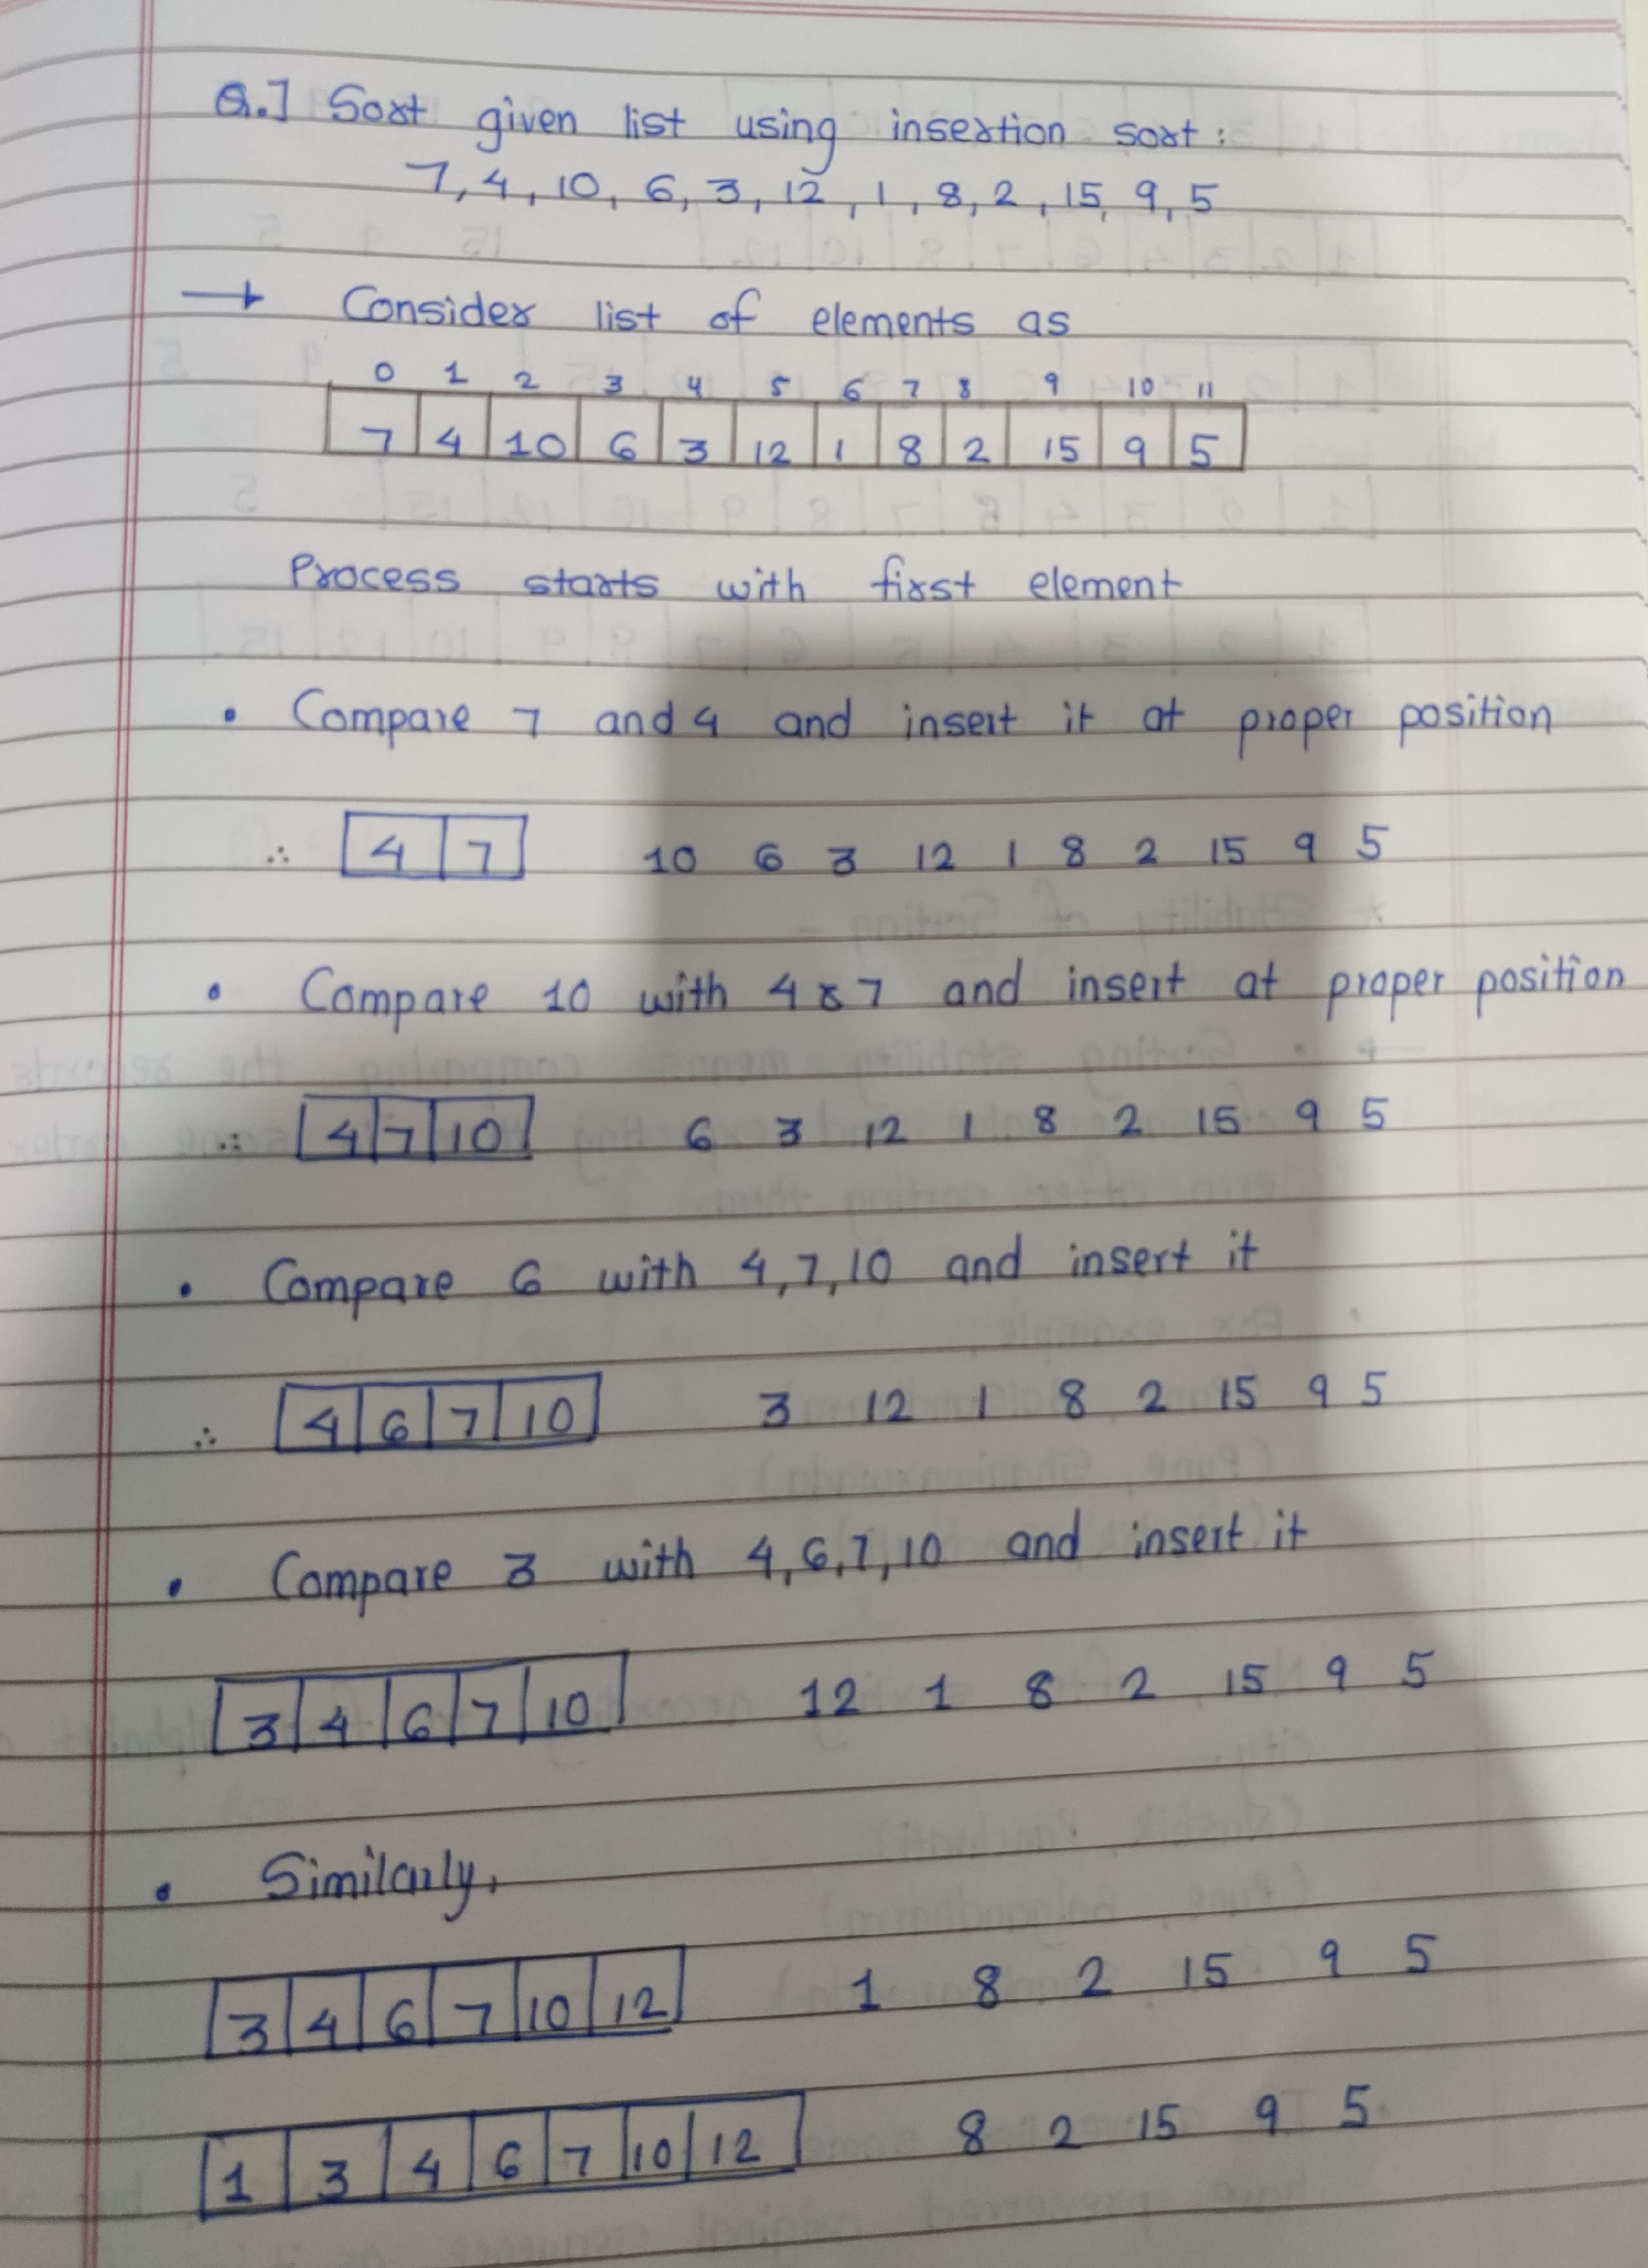 Q.] Sort given list using insertion sort :
7, 4, 10, 6, 3, 12, 1, 8, 2, 15, 9, 5
→ Consider list of elements as
0 1 2 3 4 5 6 7 8 9 10 11
7 4 10 6 3 12 1 8 2 15 9 5
Process starts with first element
• Compare 7 and 4 and insert it at proper position
∴ 4 7 10 6 3 12 1 8 2 15 9 5
• Compare 10 with 4 & 7 and insert at proper position
∴ 4 7 10 6 3 12 1 8 2 15 9 5
• Compare 6 with 4, 7, 10 and insert it
∴ 4 6 7 10 3 12 1 8 2 15 9 5
• Compare 3 with 4, 6, 7, 10 and insert it
3 4 6 7 10 12 1 8 2 15 9 5
• Similarly,
3 4 6 7 10 12 1 8 2 15 9 5
1 3 4 6 7 10 12 8 2 15 9 5